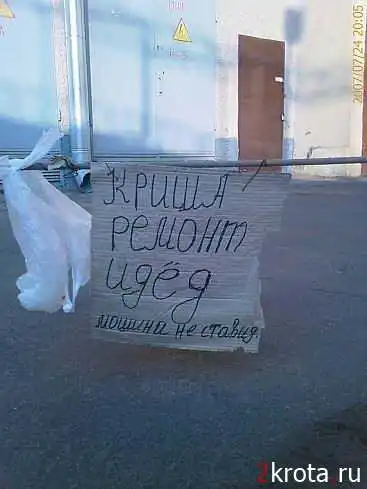 2007/07/24 20:05
КРИША
РЕМОНТ
идёд
мошина не ставид.
2krota.ru